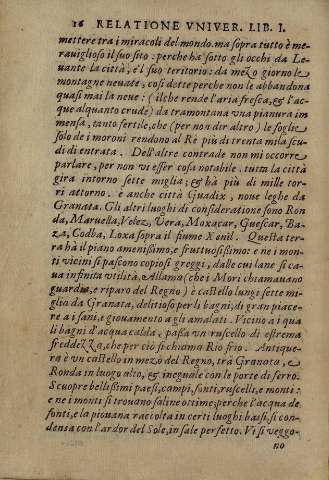 16 RELATIONE VNIVER. LIB. I.
mettere tra i miracoli del mondo. ma sopra tutto è me-
rauiglioso il suo sito: perche hà sotto gli occhi da Le-
uante la città, e'l suo teritorio: da mezo giorno le
montagne neuate, così dotte perche non le abbandona
quasi mai la neue: (il che rende l'aria fresca, & l'ac-
que alquanto crude) da tramontana vna pianura im
mensa, tanto fertile, che (per non dir altro) le foglie
solo de i moroni rendono al Rè più di trenta mila scu-
di di entrata. Dell'altre contrade non mi occorre
parlare, per non vi esser cosa notabile. tutta la città
gira intorno sette miglia; & hà più di mille tor-
ri attorno. è anche città Guadix, noue leghe da
Granata. Gli altri luoghi di consideratione sono Ron
da, Maruella, Velez, Vera, Moxacar, Guescar, Ba-
za, Codba, Loxa sopra il fiume Xenil. Questa ter-
ra hà il piano amenißimo, e fruttuosißimo: e ne i mon-
ti vicini si pascono copiosi greggi, dalle cui lane si ca-
ua infinita vtilità. Allama (che i Mori chiamauano
guardia, e riparo del Regno) è castello lungi sette mi-
glio da Granata, delitioso per li bagni, di gran piace-
re a i sani, e giouamento a gli amalati. Vicino a i qua
li bagni d'acqua calda, paßa vn ruscello di estrema
freddezza, che per ciò si chiama Rio frio. Antique-
ra è vn castello in mezo del Regno, trà Granata, e
Ronda in luogo alto, & ineguale con le porte di ferro.
Scuopre bellißimi paesi, campi, fonti, ruscelli, e monti:
e ne i monti si trouano saline ottime; perche l'acqua de
fonti, e la piouana raccolta in certi luoghi baßi, si con-
densa con l'ardor del Sole, in sale perfetto. Vi si veggo-
no